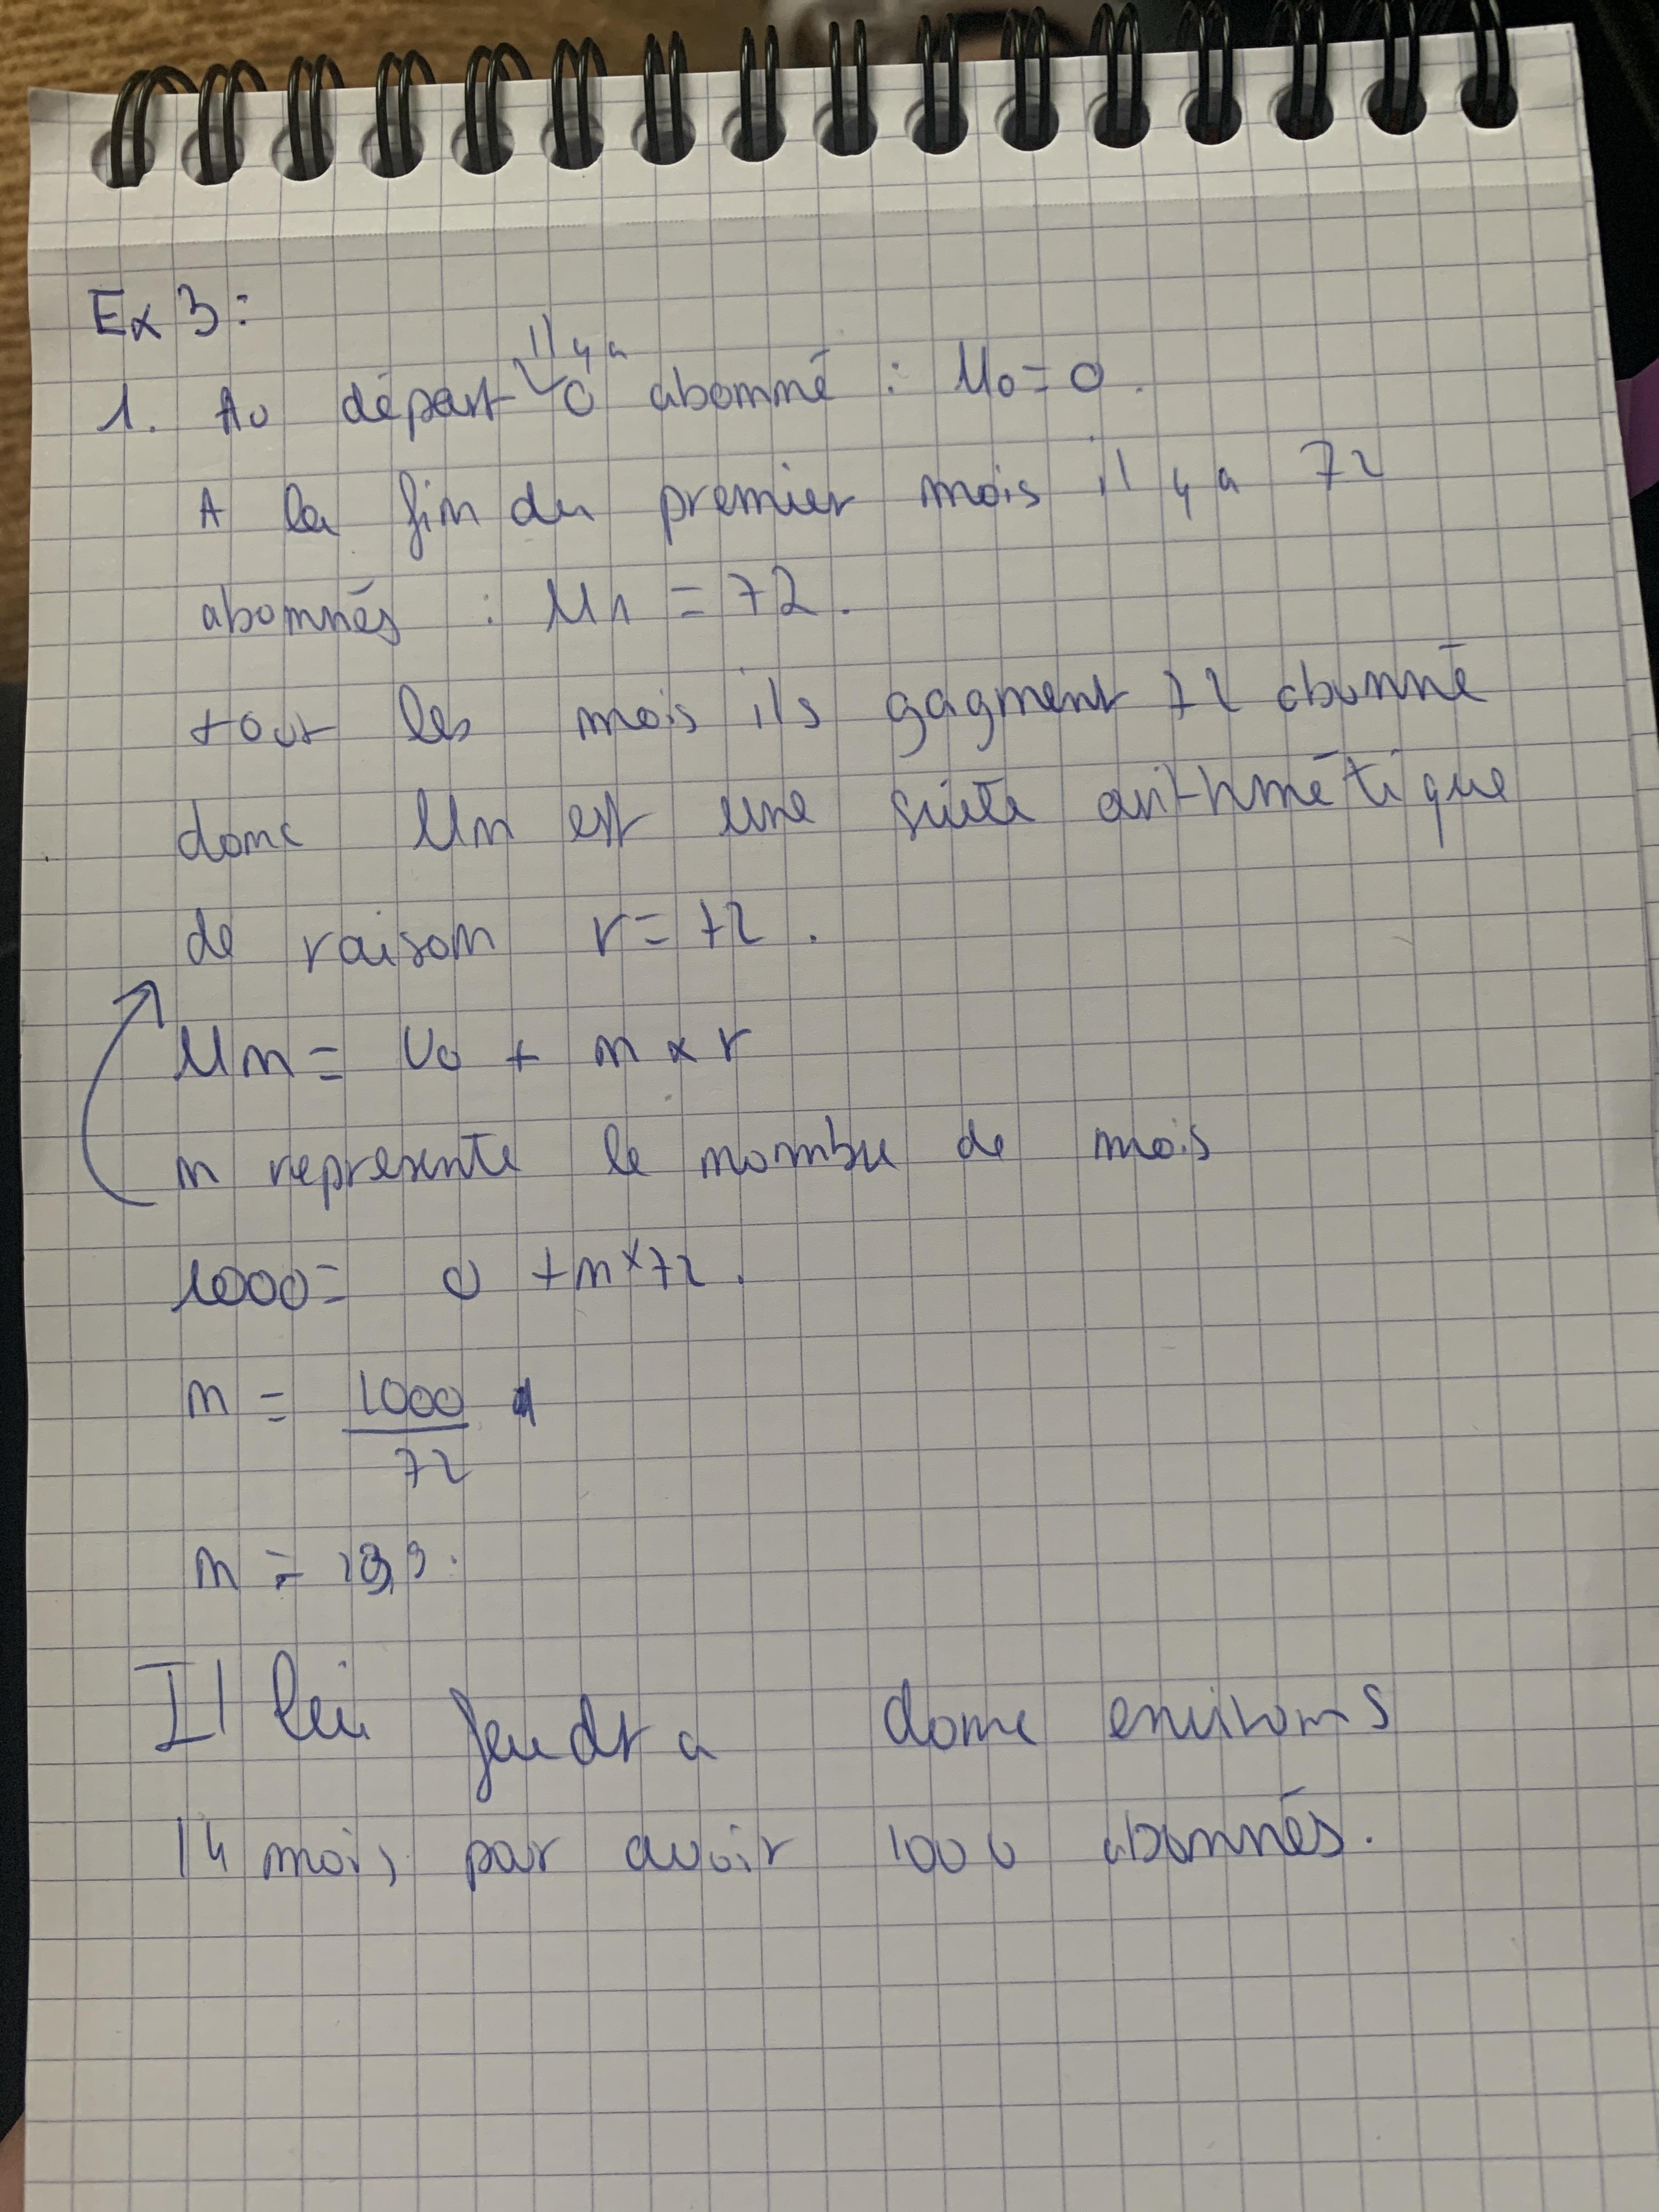 Ex 3:
1. Au départ il y a 0 abonné : U0 = 0.
A la fin du premier mois il y a 72
abonnés : U1 = 72.
tout les mois ils gagnent 72 abonné
donc Un est une suite arithmétique
de raison r = 72.
Un = U0 + n x r
n représente le nombre de mois
1000 = 0 + n x 72.
n = 1000
72
n = 13,9.
Il lui faudra donc environs
14 mois par avoir 1000 abonnés.